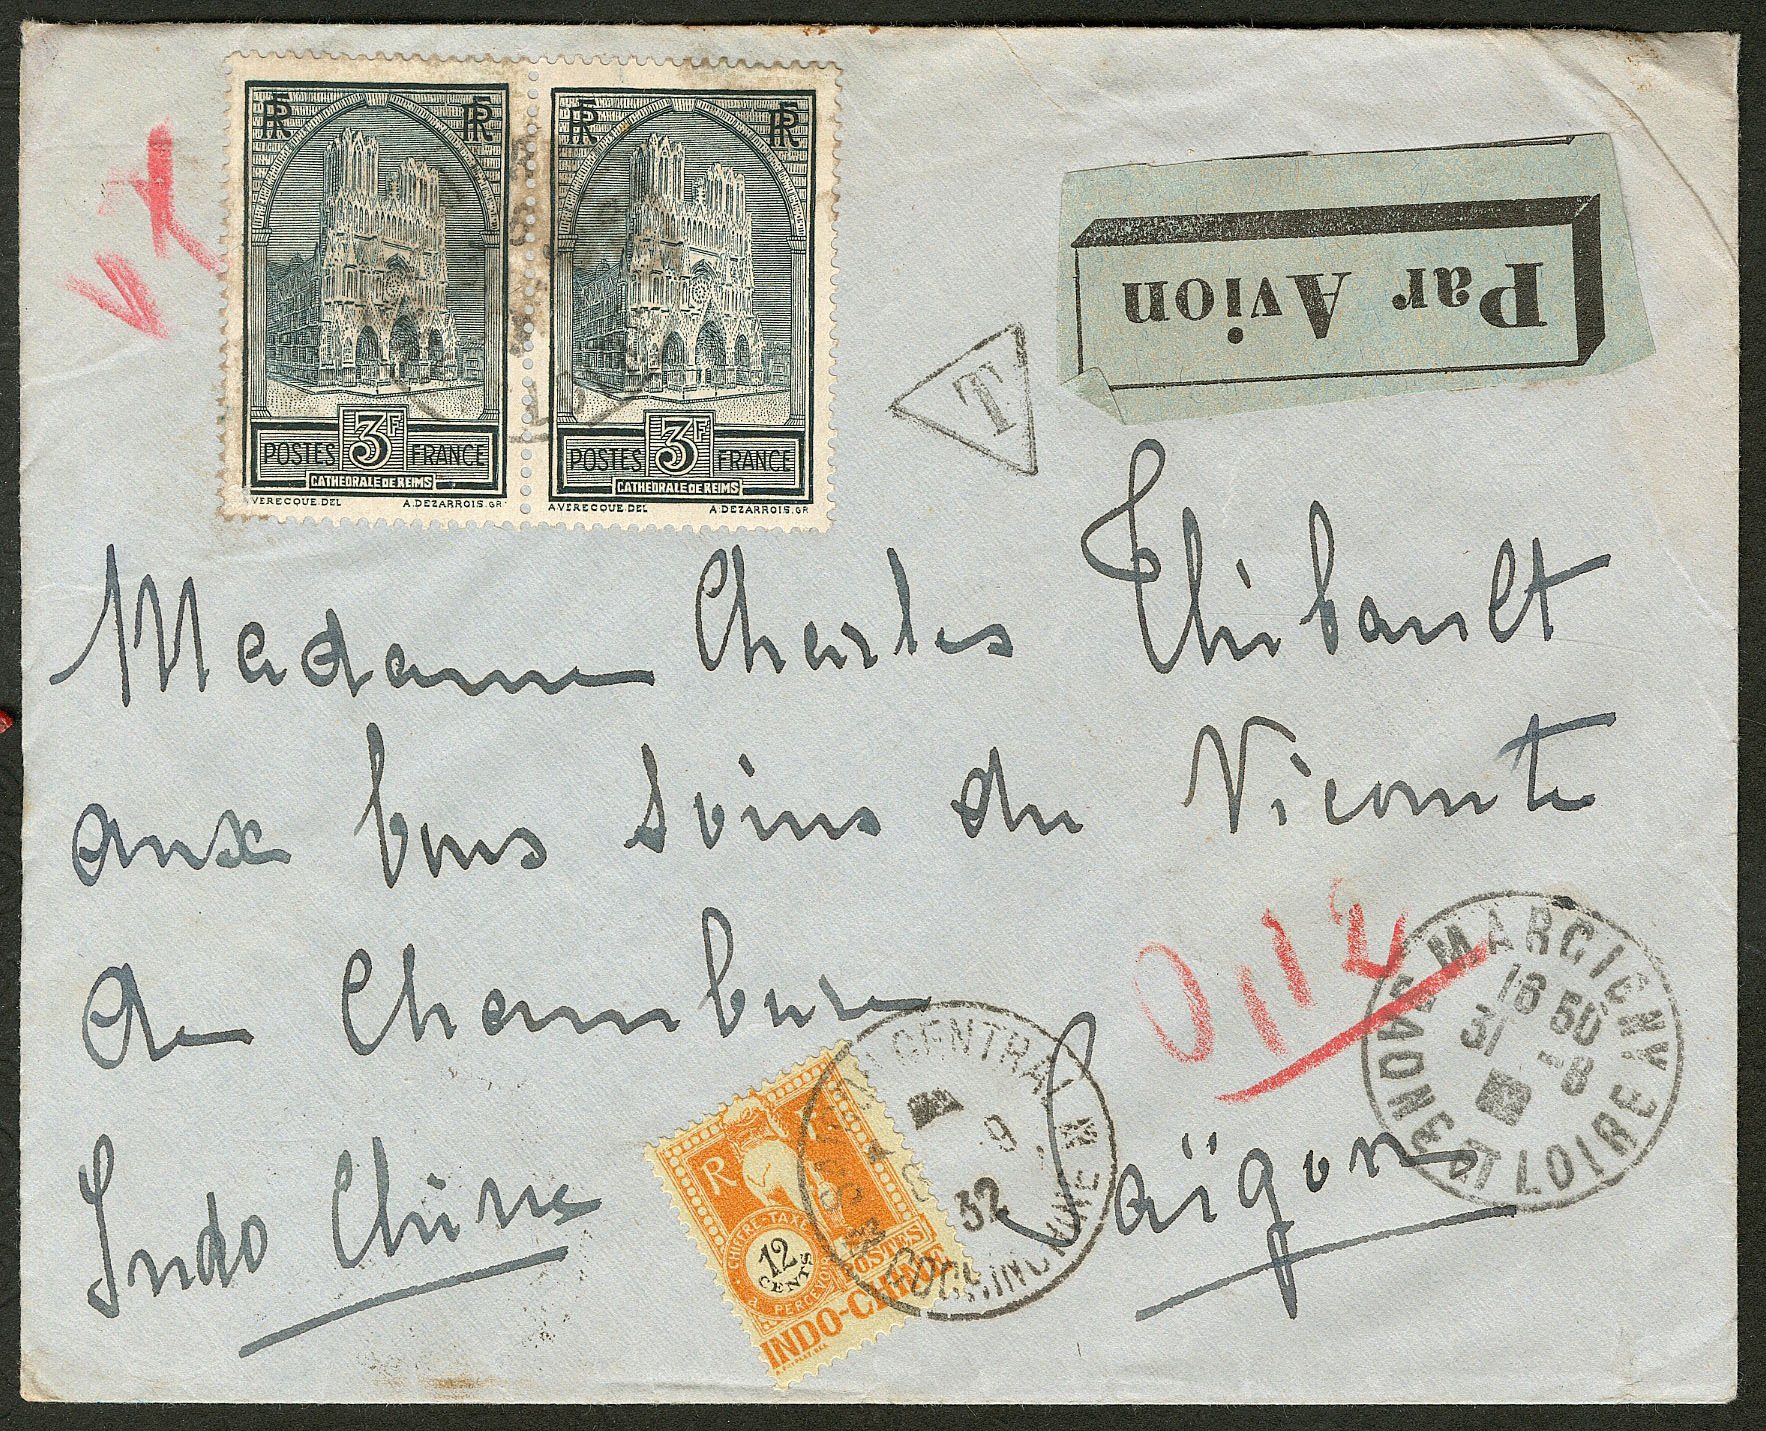 RF RF
RF RF
3F
POSTES FRANCE
CATHEDRALE DE REIMS
VERECQUE.DEL A.DEZARROIS.GR
3F
POSTES FRANCE
CATHEDRALE DE REIMS
A.VERECQUE.DEL A.DEZARROIS.GR
Par Avion
T
Madame Charles Thibault
aux bons soins du Vicomte
de Chambure
Saïgon
Indo Chine
0,12
MARCIGNY
16 50
31 -8
SAONE ET LOIRE
CENTRAL
9
32
COCHINCHINE
R
CHIFFRE-TAXE
12
CENTS
A PERCEVOIR
POSTES
INDO-CHINE